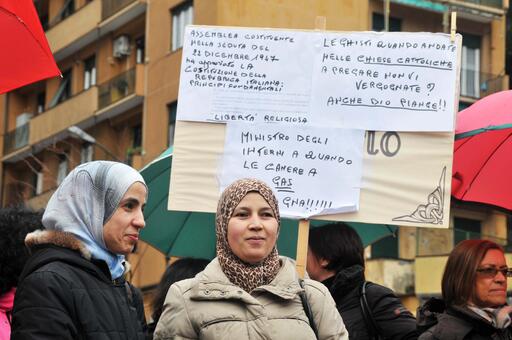 ASSEMBLEA COSTITUENTE
NELLA SEDUTA DEL
22 DICEMBRE 1947
HA APPROVATO LA
COSTITUZIONE DELLA
REPUBBLICA ITALIANA;
PRINCIPI FONDAMENTALI
LIBERTA' RELIGIOSA
LEGHISTI QUANDO ANDATE
NELLE CHIESE CATTOLICHE
A PREGARE NON VI
VERGOGNATE?
ANCHE DIO PIANGE!!
MINISTRO DEGLI
INTERNI A QUANDO
LE CAMERE A
GAS
to